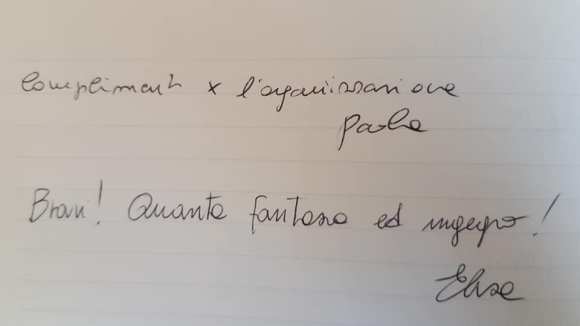 Complimenti x l'organizzazione
Paola
Bravi! Quanta fantasia ed ingegno!
Elisa